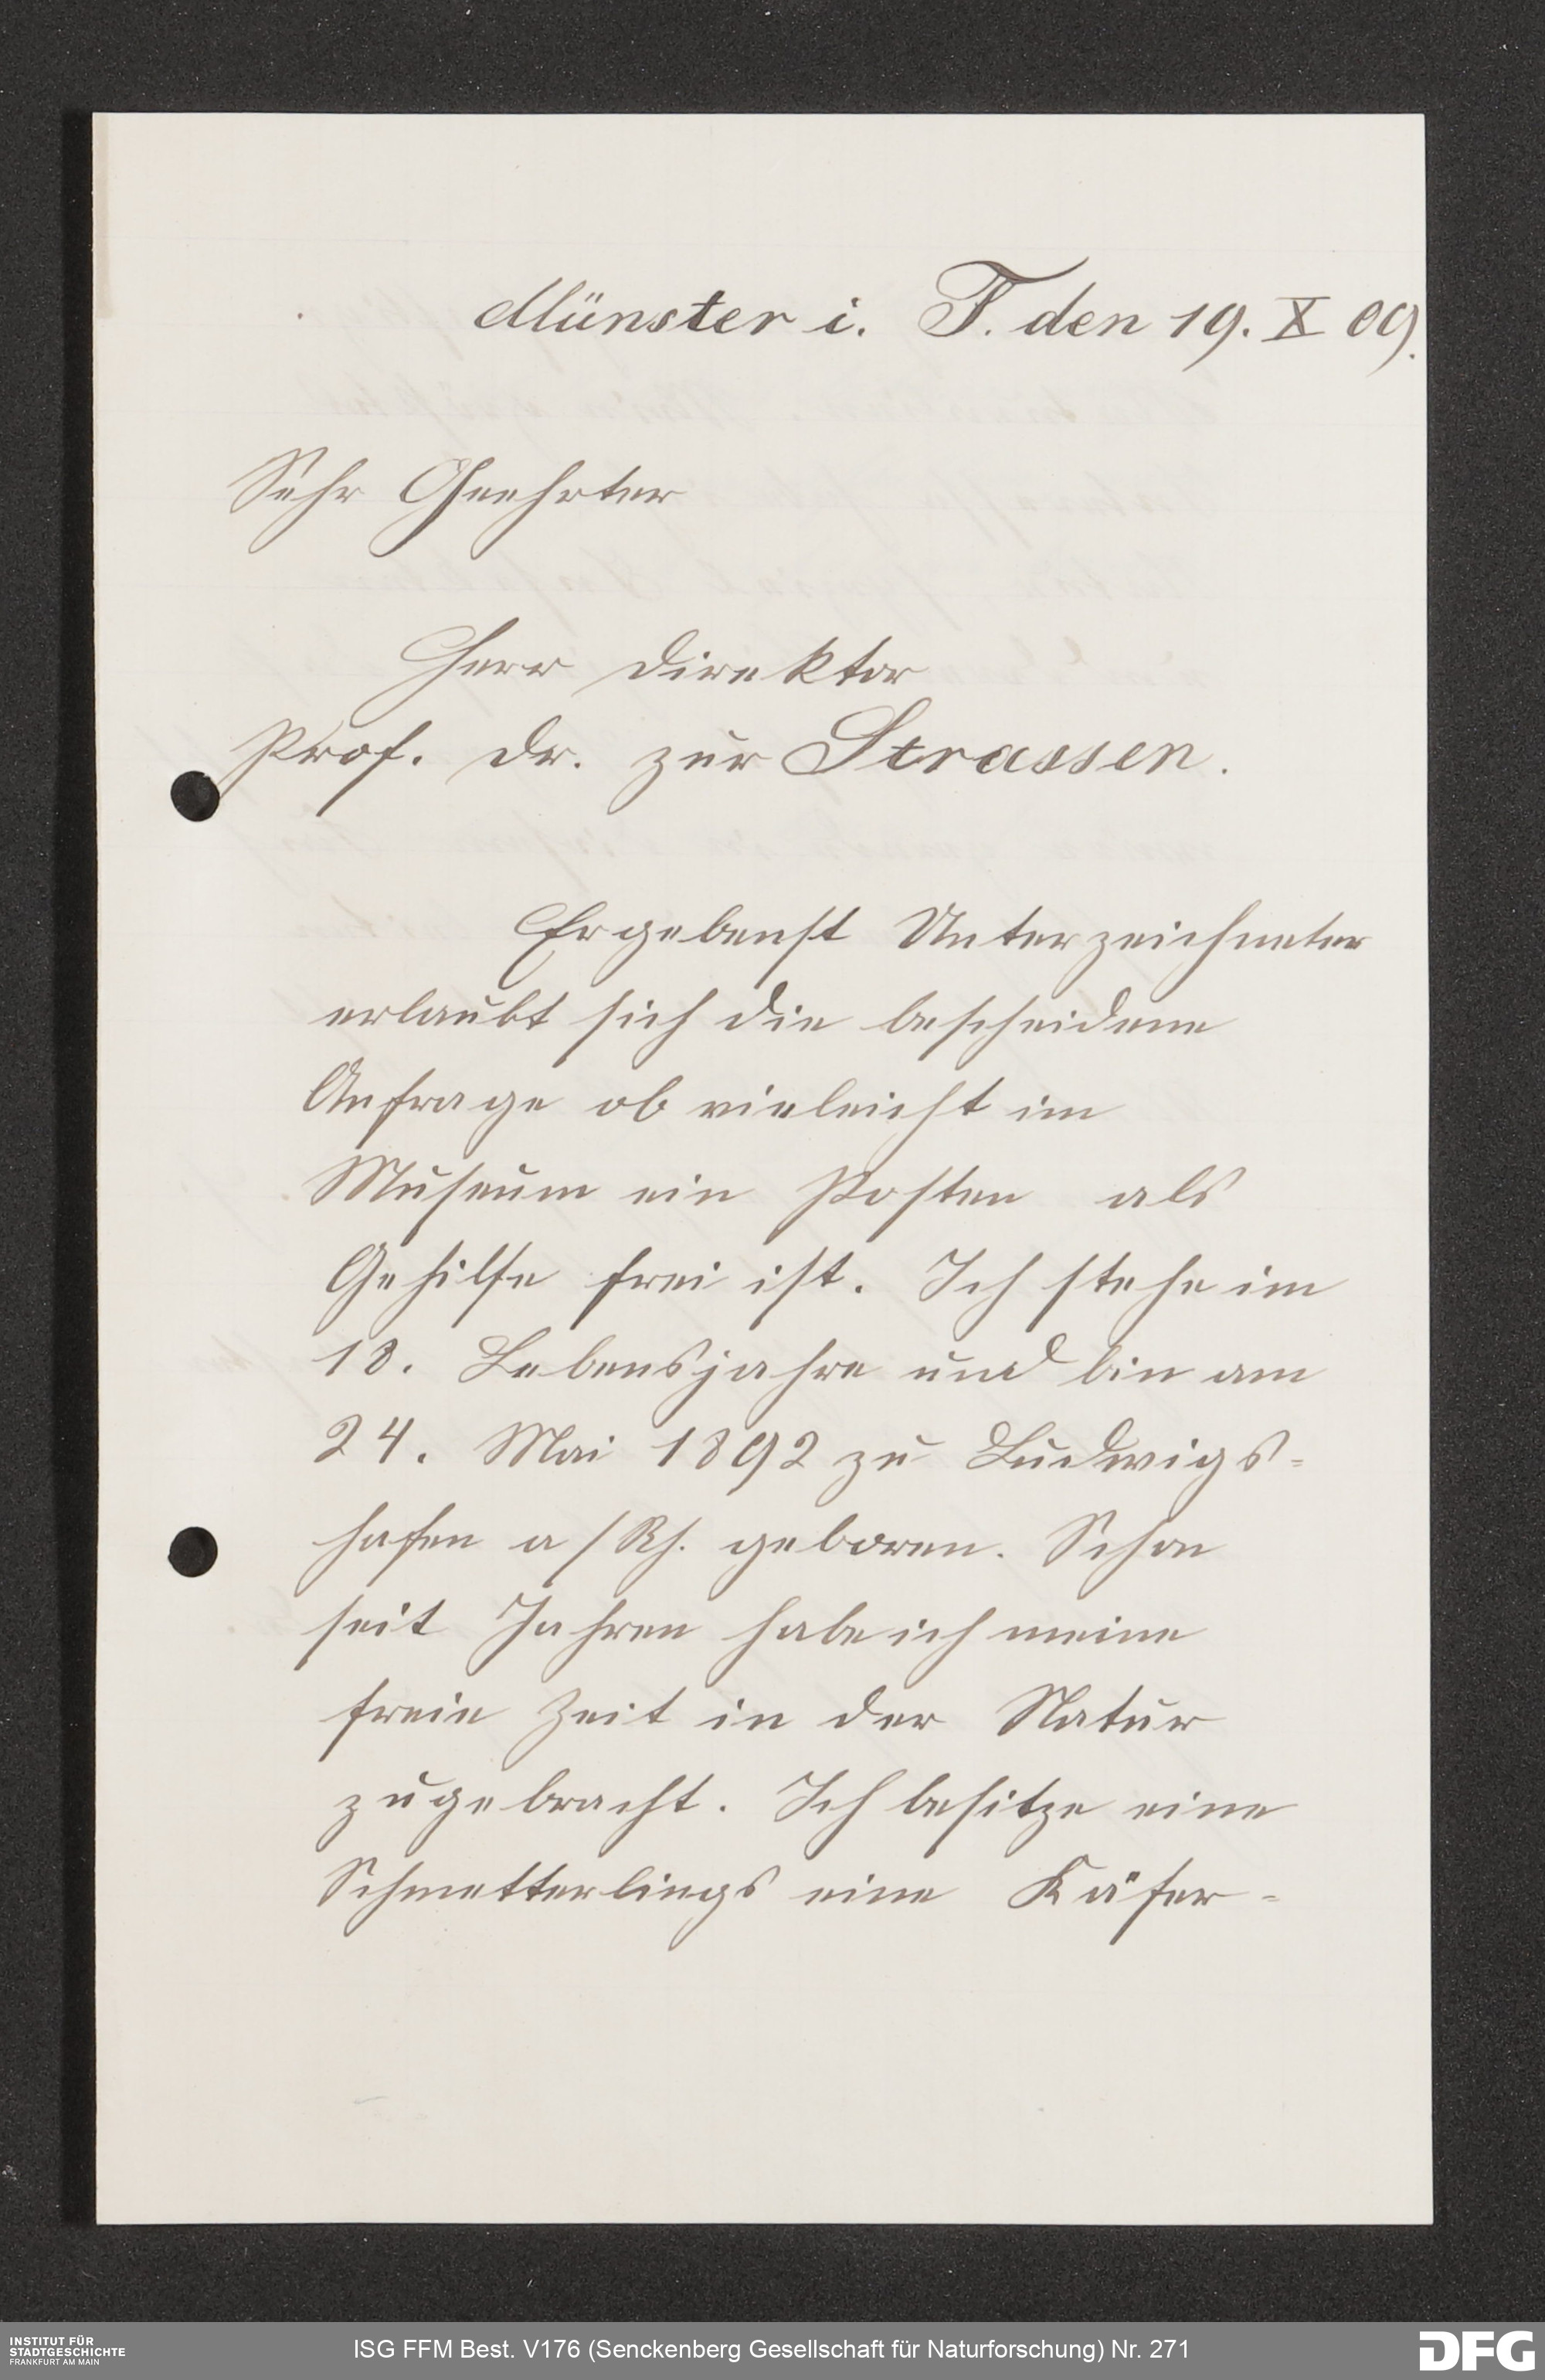 Münster i. T. den 19. X 09.
Sehr Geehrter
Herr Direktor
Prof. Dr. zur Strassen.
Ergebenst Unterzeichneter
erlaubt sich die bescheidene
Anfrage ob vieleicht im
Museum ein Posten als
Gehilfe frei ist. Ich stehe im
18. Lebensjahre und bin am
24. Mai 1892 zu Ludwigs-
hafen a/Rh. geboren. Schon
seit Jahren habe ich meine
freie Zeit in der Natur
zugebracht. Ich besitze eine
Schmetterlings eine Käfer-
INSTITUT FÜR
STADTGESCHICHTE
FRANKFURT AM MAIN
ISG FFM Best. V176 (Senckenberg Gesellschaft für Naturforschung) Nr. 271
DFG